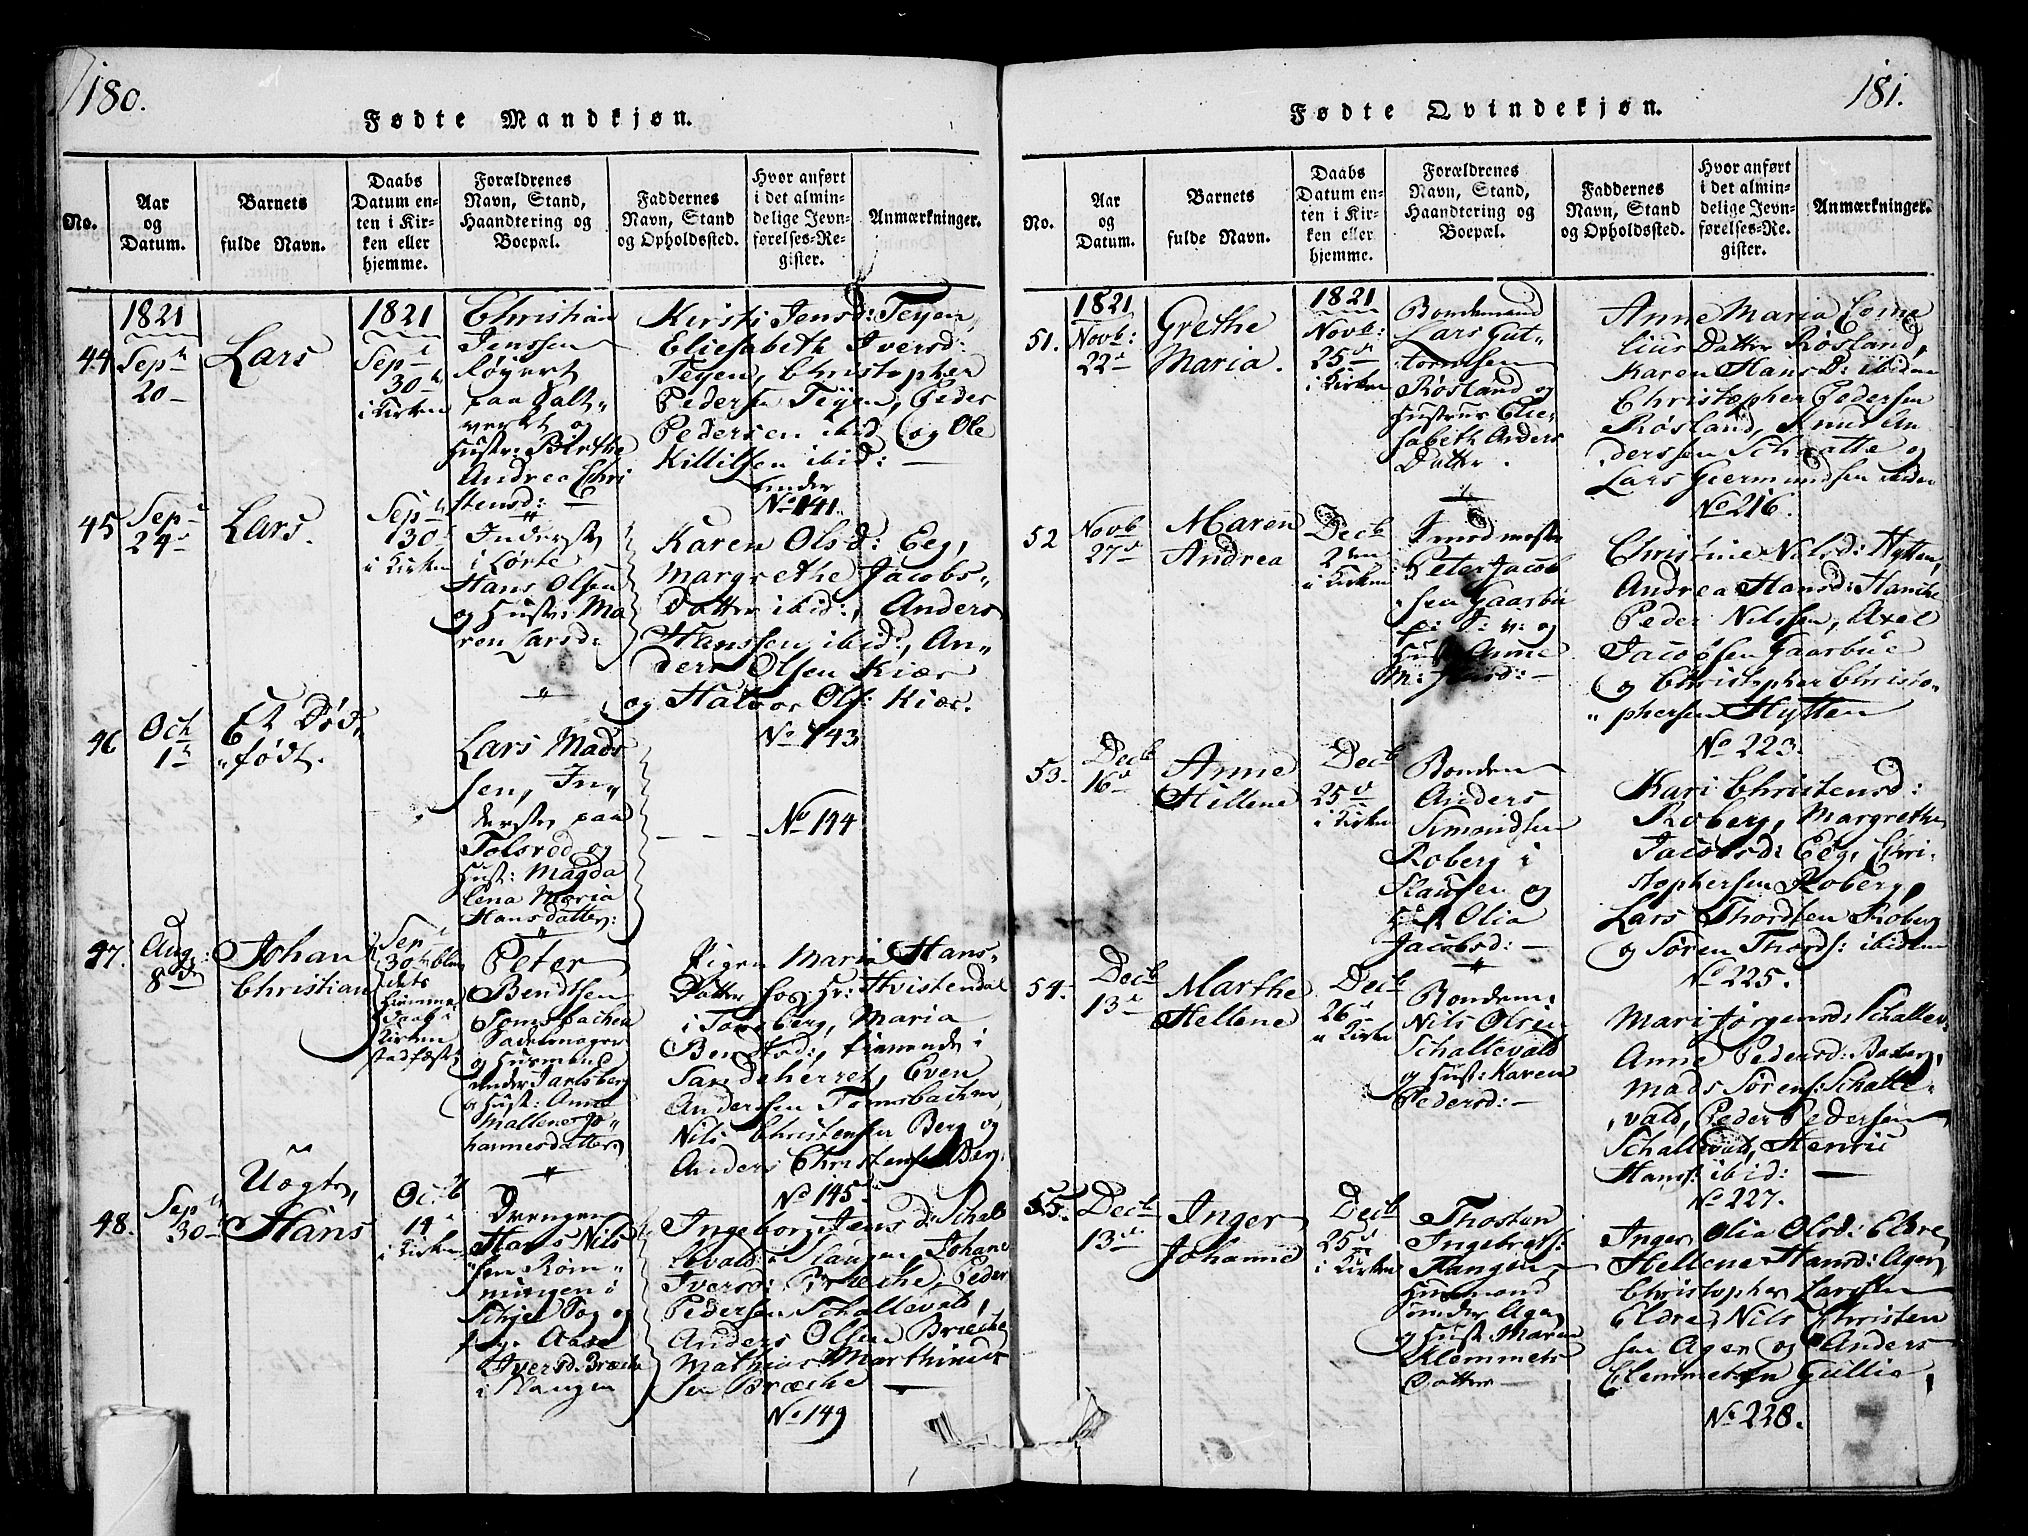 180.
Fødte Mandkjøn.
No.
Aar
og
Datum.
Barnets
fulde Navn.
Daabs
Datum en-
ten i Kir-
ken eller
hjemme.
Forældrenes
Navn, Stand,
Haandtering og
Boepæl.
Faddernes
Navn, Stand
og Opholdssted.
Hvor anført
i det almin-
delige Jevn-
førelses-Re-
gister.
Anmærkninger.
44
1821
Sep
20
Lars
1821
Sep
30
i Kirken
Christian
Jenssen
paa
og
Hustr: Birthe
Andrea Chri
stensd:
Kirsti Jensd: Teyen,
Eliesabeth Iversd:
Teyen, Christopher
Pedersen Teyen, Peder
Pedersen ibid (og Ole
Killilsen ibid:
under
No 141.
45
Sep
24
Lars.
Sep
30
i Kirken
Inderste
i Lørte
Hans Olsen
og Hustr: Ma
ren Larsd:
Karen Olsd: Eeg,
Margrethe Jacobs„
Datter ibid:, Anders
Hanssen ibid:, An„
ders Olsen Kiær
og Halvor Ols: Kiær.
No 143.
46
Oct
1
Et Død„
„født.
Lars Mads
sen, In„
derste paa
Tolsrød og
Hust: Magda
lena Maria
Hansdatter:
No 144
47.
Aug:
8de
Johan
Christian
Sep
30
dets
Hiemme
Daab i
Kirken
stadfæstet
Peter
Bendtsen
Tomsbachen
Sadelmager
og Husmand
under Jarlsberg
og Hust: Anne
Mallene Jo„
hannesdatter
Pigen Maria Hans„
Datter hos Hr: Hvistendal
i Tønsberg, Maria
Bendtsd:, tienende i
Sandeherret, Even
Andersen Tomsbachen,
Nils Christensen Berg og
Anders Christensen Berg.
No 145
48.
Sep
30
Uægte,
Hans
Octb
14
i Kirken
Drengen
Hans Nils
„sen Røm„
ningen i
og
Pige Aase
Iversd: Bræche
i Slangen
Ingeborg Jens d: Schal
levald i Slangen, Johane
Iversd: Bræche, Peder
Pedersen Schallevald,
Anders Olsen Bræche
Mathias Marthinus
sen Bræche
No 149
181.
Fødte Qvindekjøn.
No.
Aar
og
Datum.
Barnets
fulde Navn.
Daabs
Datum en-
ten i Kir-
ken eller
hjemme.
Forældrenes
Navn, Stand,
Haandtering og
Boepæl.
Faddernes
Navn, Stand
og Opholdssted.
Hvor anført
i det almin-
delige Jevn-
førelses-Re-
gister.
Anmærkninger.
51.
1821
Novb:
22
Grethe
Maria.
1821
Novb:
25
i Kirken
Bondemand
Lars Gut„
tormsen
Røsland og
Hustrue Elie„
sabeth Anders
Datter.
Anne Maria Corne
lius Datter Røsland,
Karen Hans D: ibidem
Christopher Pedersen
Røsland, Knud An
derssen Schaatte og
Lars Giermundsen ibidem
No 216.
52
Novb
27
Maren
Andrea
Decb
2
i Kirken
Peter Jacob
sen Gaarbo
og
Hust: Anne
Christine Nilsd: Hytten,
Andrea Hansd: Hanche
Peder Nilssen, Axel
Jacobsen Gaarbue
og Christopher Christo„
„phersen Hytten
No 223.
53.
Decb
16
Anne
Hillene
Decb
25
i Kirken
Bonden
Anders
Simondsen
Roberg i
Slausen og
Hust Olia
Jacobsd:
Kari Christensd:
Roberg, Margrethe
Jacobsd: Eeg, Chri„
stophersen Roberg,
Lars Thordsen Roberg
og Søren Thords: ibidem
No 225.
54.
Decb
13
Marthe
Hellene
Decb
26
i Kirken
Bondem:
Nils Olsen
Schallevald
og Hust: Karen
Pedersd:
Mari Jørgensd: Schallev
Anne Pedersd: Baberg,
Mads Sørens: Schalle„
„vald, Peder Pedersen
Schallevald, Henric
Hans: ibid:
No 227.
55.
Decb
13
Inger
Johanne
Decb
25
i Kirken
Thosten
Ingebrets:
Tangen,
Husmand
under Agen
og Hust. Maren
Klemmets
Datter
Inger Olia Olsd: Eldre,
Hellene Hansd: Agen,
Christopher Larssen
Eldre, Nils Christen
sen Agen og Anders
Clemmetsen Gullie,
No 228.